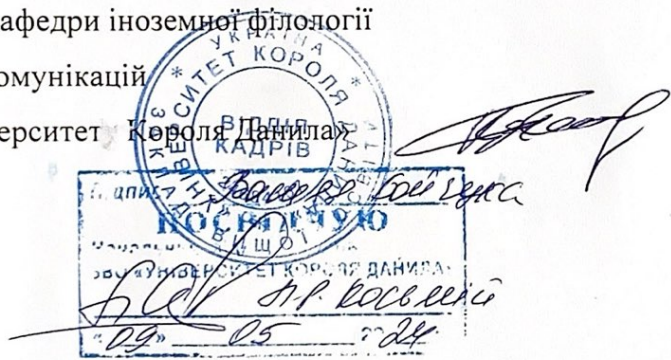 афедри іноземної філології
омунікацій
ерситет Короля Данила»
УКРАЇНА
УНІВЕРСИТЕТ КОРОЛЯ ДАНИЛА
ВІДДІЛ
КАДРІВ
Підпис Бойчука
ПОСВІДЧУЮ
ЗВО «УНІВЕРСИТЕТ КОРОЛЯ ДАНИЛА»
«09» 05 2024